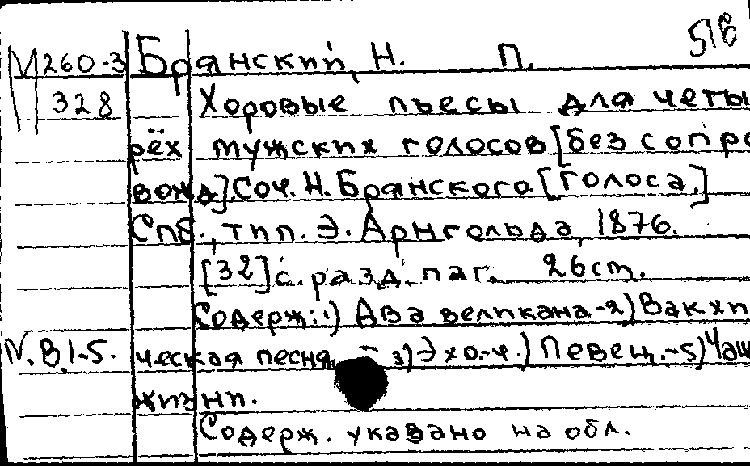 М260-3 Брянский, Н. П. 518
328 Хоровые пьесы для четы
рёх мужских голосов [без сопро
вожд]. Соч. Н. Брянского [Голоса.]
Спб., тип. Э. Арнгольда, 1876.
[32] с. разд. паг. 26 cm.
Содерж.: 1) Два великана.-2) Вакхи
N. B. 1-5. ческая песня. - 3) Эхо.-4.) Певец.-5) Чаш
жизни.
Содерж. указано на обл.